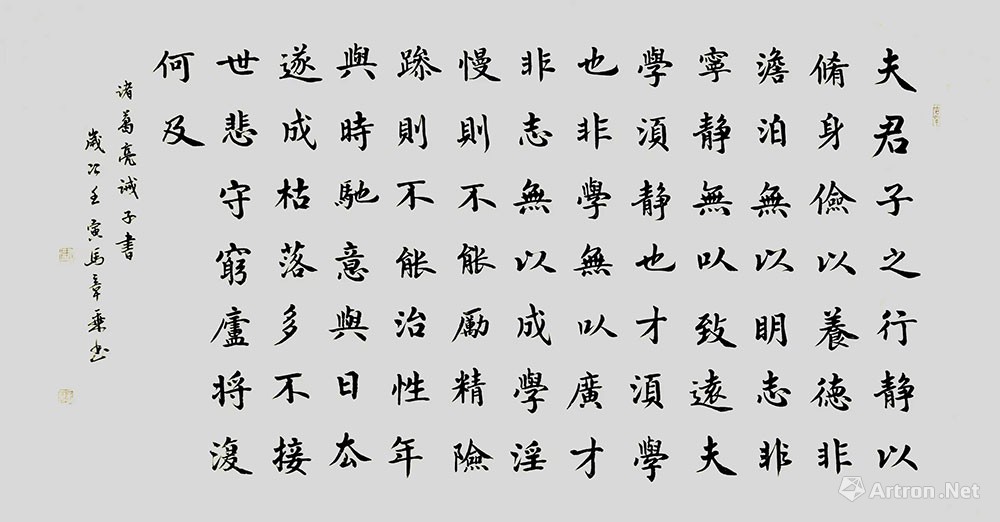 夫君子之行静以
脩身儉以養德非
澹泊無以明志非
寧静無以致遠夫
學須静也才須學
也非學無以廣才
非志無以成學淫
慢則不能勵精險
躁則不能治性年
與時馳意與日去
遂成枯落多不接
世悲守窮廬将復
何及
诸葛亮诫子書
歲次壬寅馬章乘书
Artron.Net